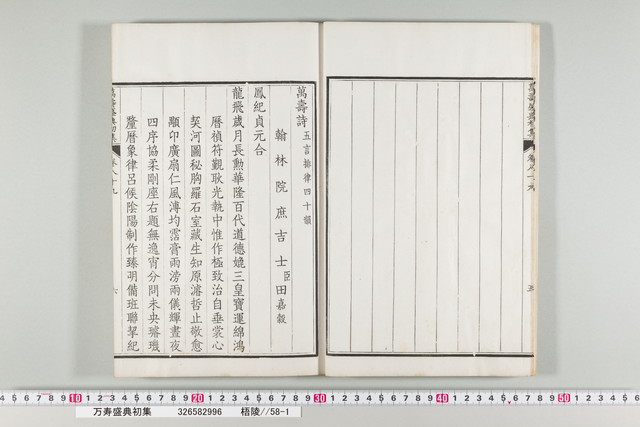 萬壽詩 五言排律四十韻
翰林院庶吉士臣田嘉穀
鳳紀貞元合
龍飛歲月長勲華隆百代道德媲三皇寶運綿鴻
曆禎符觀耿光執中惟作極致治自垂裳心
契河圖秘胸羅石室藏生知原濬哲止敬愈
顒卬廣扇仁風溥均霑膏雨滂兩儀輝晝夜
四序協柔剛座右題無逸宵分問未央璿璣
釐曆象律呂候陰陽制作臻明備班聯挈紀
萬壽盛典初集 卷八十九 六
萬壽盛典初集 卷八十九 五
10 20 30 40 50
万寿盛典初集 326582996 梧陵//58-1